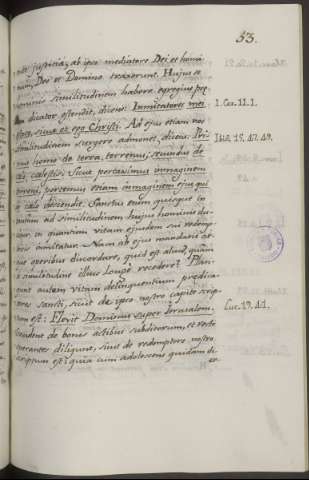 53.
justicia, ab ipso mediatore Dei et homi
Deo et Domino traxerunt. Hujus se
hominis similitudinem habere egregius præ
dicator ostendit, dicens: Immitatores mei
sicut et ego Christi. Ad ejus etiam nos
I. Cor. 11. 1.
similitudinem surgere admonet, dicens: Pri
homo de terra, terrenus, secundus de
Ibid. 15. 47. 49.
cælo cælestis: Sicut portavimus immaginem
terreni, portemus etiam immaginem ejus qui
de cælo descendit. Sanctus enim quisque in
tantum ad similitudinem hujus hominis du
citur, in quantum vitam ejusdem sui redemp
toris imitatur. Nam ab ejus mandatis at
que operibus discordare, quid est aliud, quam
a similitudine illius longe recedere? Plan
gunt autem vitam delinquentium prædica
tores sancti, sicut de ipso nostro capite scrip
tum est: Flevit Dominus super Jerusalem.
Luc. 19. 41.
Gaudent de bonis actibus subditorum, et recte
operantes diligunt, sicut de redemptore nostro
scriptum est: quia cum adolescens quidam ti